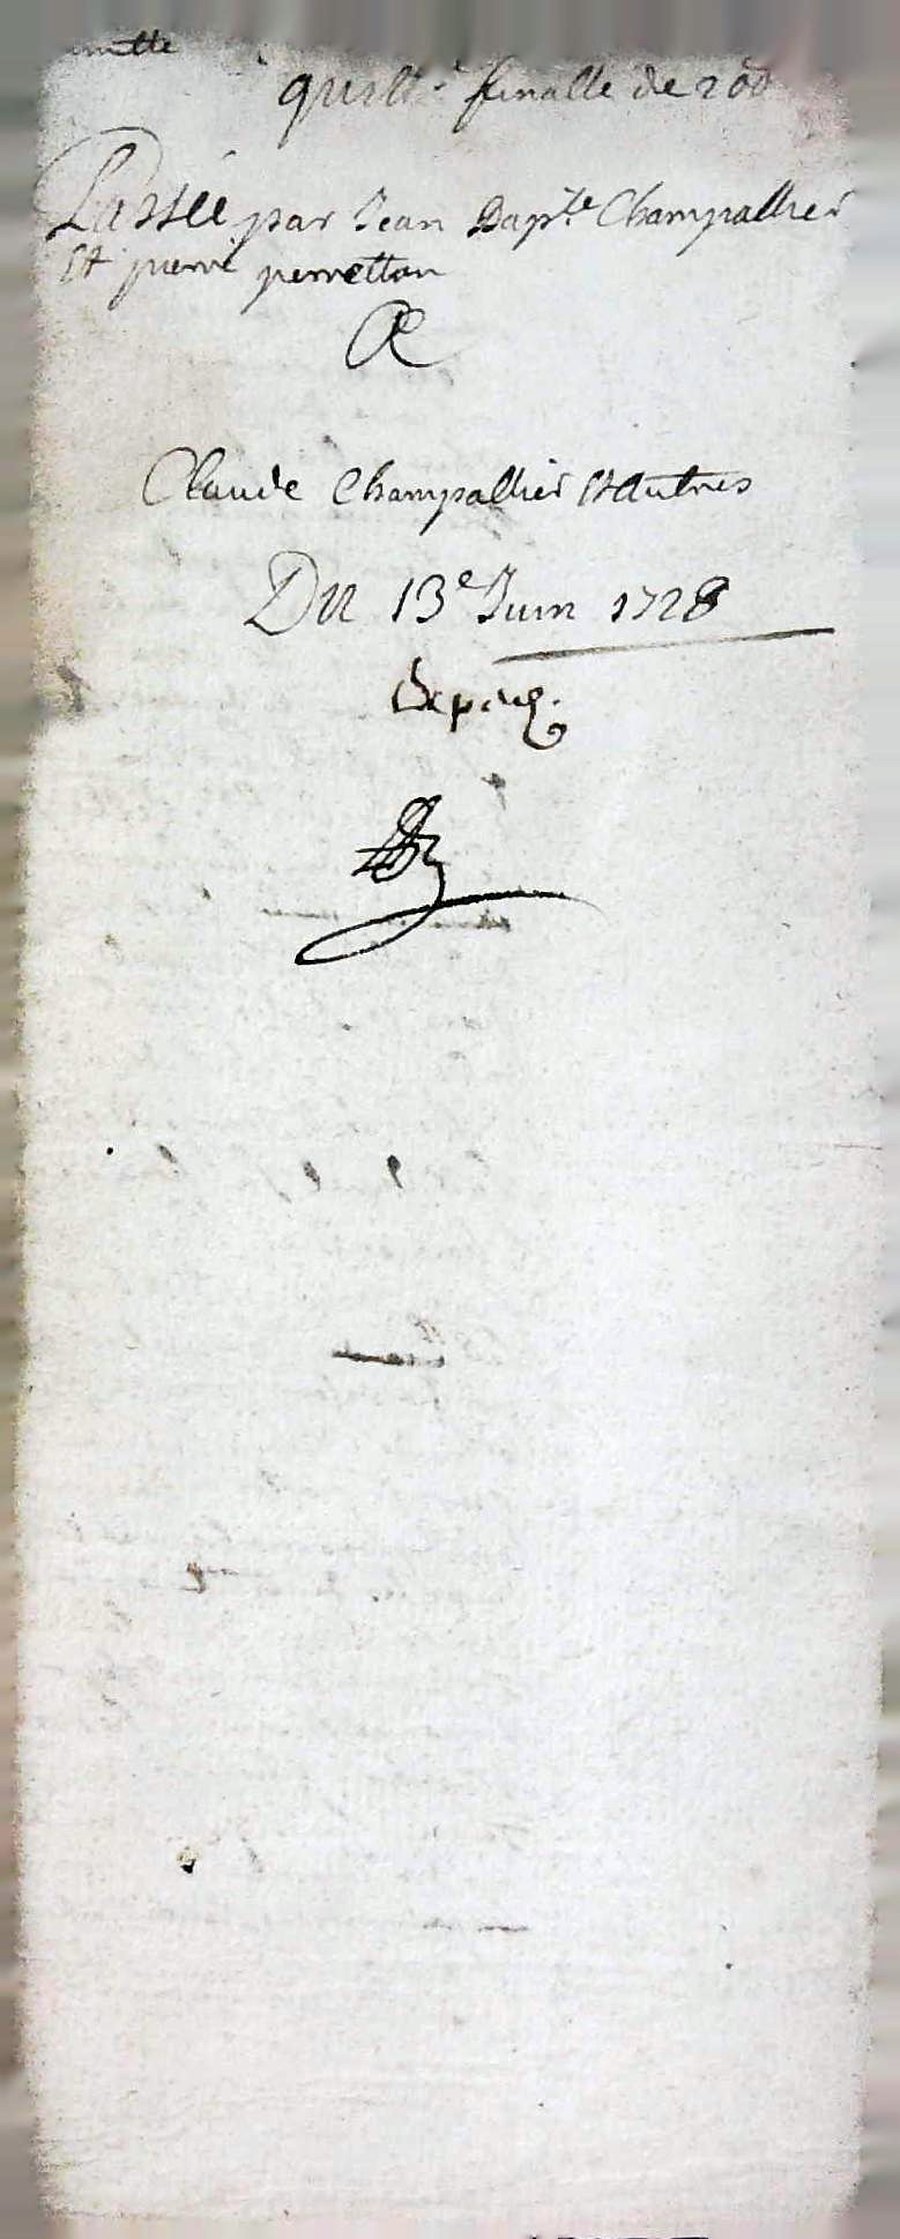 quitt.e finalle de 200
Passée par Jean Bap.te Champallier
Et pierre perretton
A
Claude Champallier Et autres
Du 13e Juin 1728